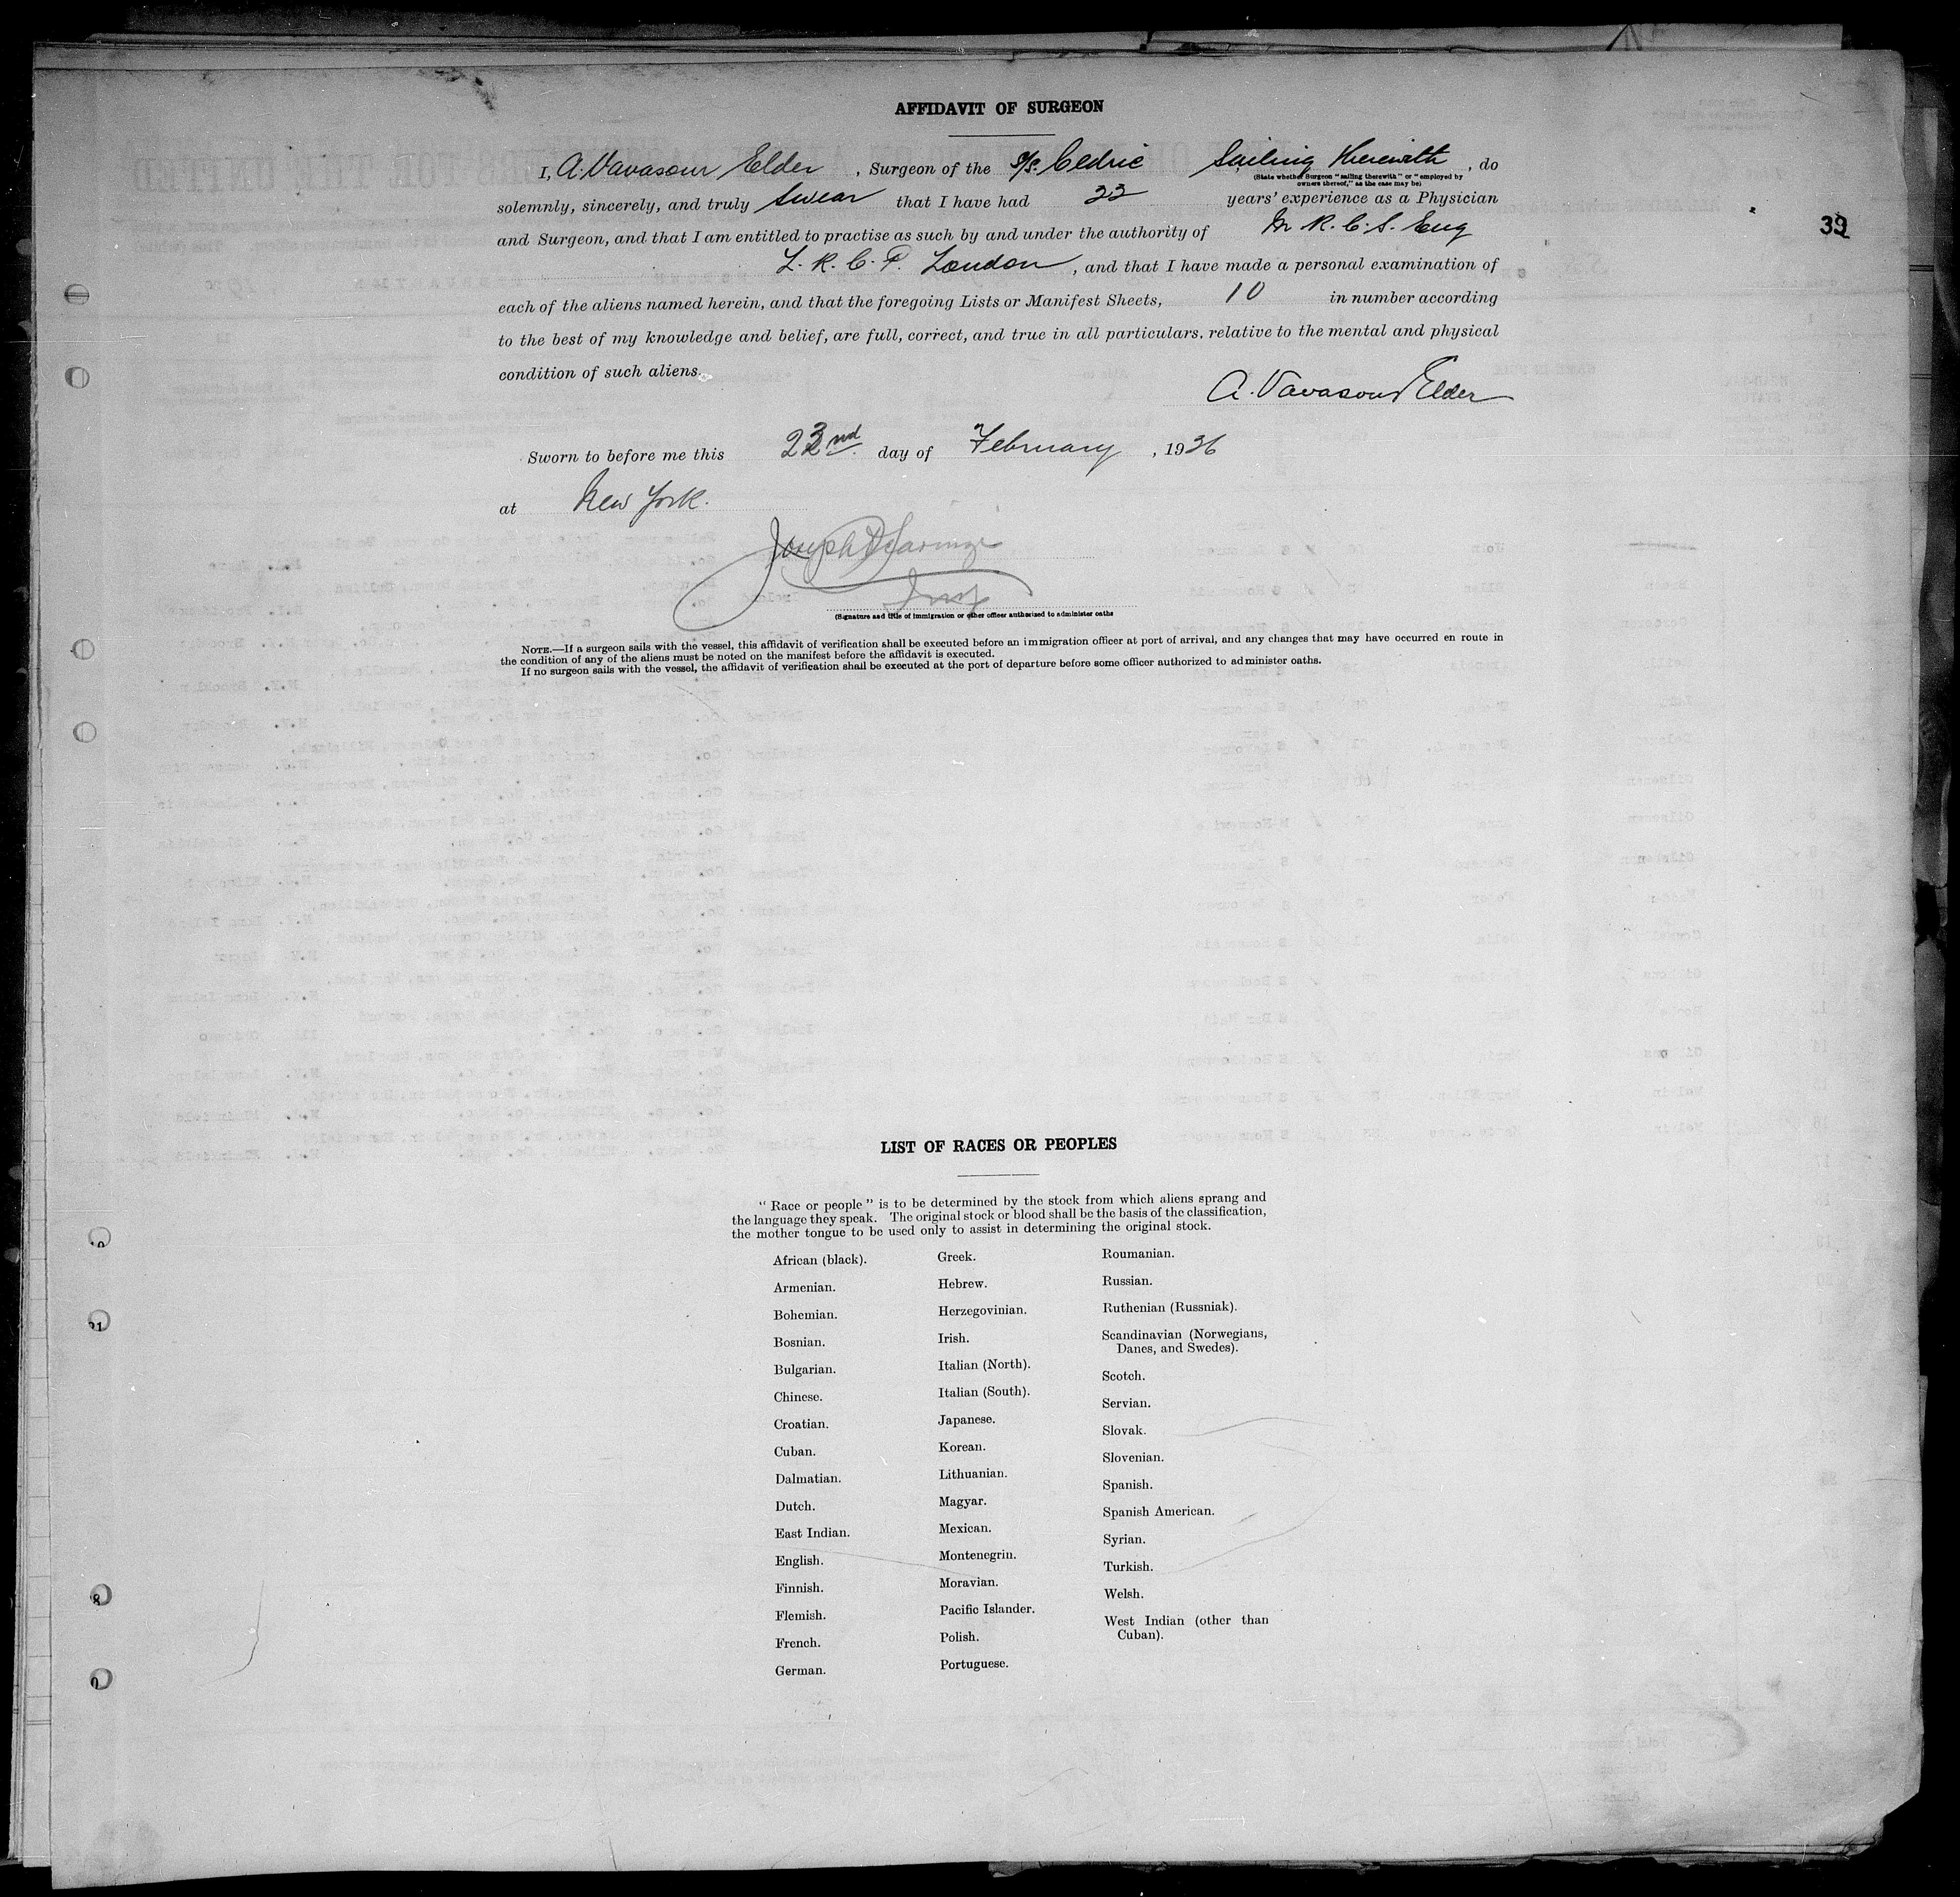 AFFIDAVIT OF SURGEON
I, A. Vavasour Elder, Surgeon of the S/S. Cedric Sailing Therewith, do
(State whether Surgeon "sailing therewith" or "employed by
owners thereof," as the case may be)
solemnly, sincerely, and truly swear that I have had years' experience as a Physician
and Surgeon, and that I am entitled to practise as such by and under the authority of M R. C. S. Eng
L. R. C. P. London, and that I have made a personal examination of
each of the aliens named herein, and that the foregoing Lists or Manifest Sheets, 10 in number according
to the best of my knowledge and belief, are full, correct, and true in all particulars, relative to the mental and physical
condition of such aliens.
A. Vavasour Elder
Sworn to before me this day of February, 19
at New York.
Joseph
(Signature and title of immigration or other officer authorized to administer oaths
NOTE.—If a surgeon sails with the vessel, this affidavit of verification shall be executed before an immigration officer at port of arrival, and any changes that may have occurred en route in
the condition of any of the aliens must be noted on the manifest before the affidavit is executed.
If no surgeon sails with the vessel, the affidavit of verification shall be executed at the port of departure before some officer authorized to administer oaths.
LIST OF RACES OR PEOPLES
"Race or people" is to be determined by the stock from which aliens sprang and
the language they speak. The original stock or blood shall be the basis of the classification,
the mother tongue to be used only to assist in determining the original stock.
African (black).
Armenian.
Bohemian.
Bosnian.
Bulgarian.
Chinese.
Croatian.
Cuban.
Dalmatian.
Dutch.
East Indian.
English.
Finnish.
Flemish.
French.
German.
Greek.
Hebrew.
Herzegovinian.
Irish.
Italian (North).
Italian (South).
Japanese.
Korean.
Lithuanian.
Magyar.
Mexican.
Montenegrin.
Moravian.
Pacific Islander.
Polish.
Portuguese.
Roumanian.
Russian.
Ruthenian (Russniak).
Scandinavian (Norwegians,
Danes, and Swedes).
Scotch.
Servian.
Slovak.
Slovenian.
Spanish.
Spanish American.
Syrian.
Turkish.
Welsh.
West Indian (other than
Cuban).